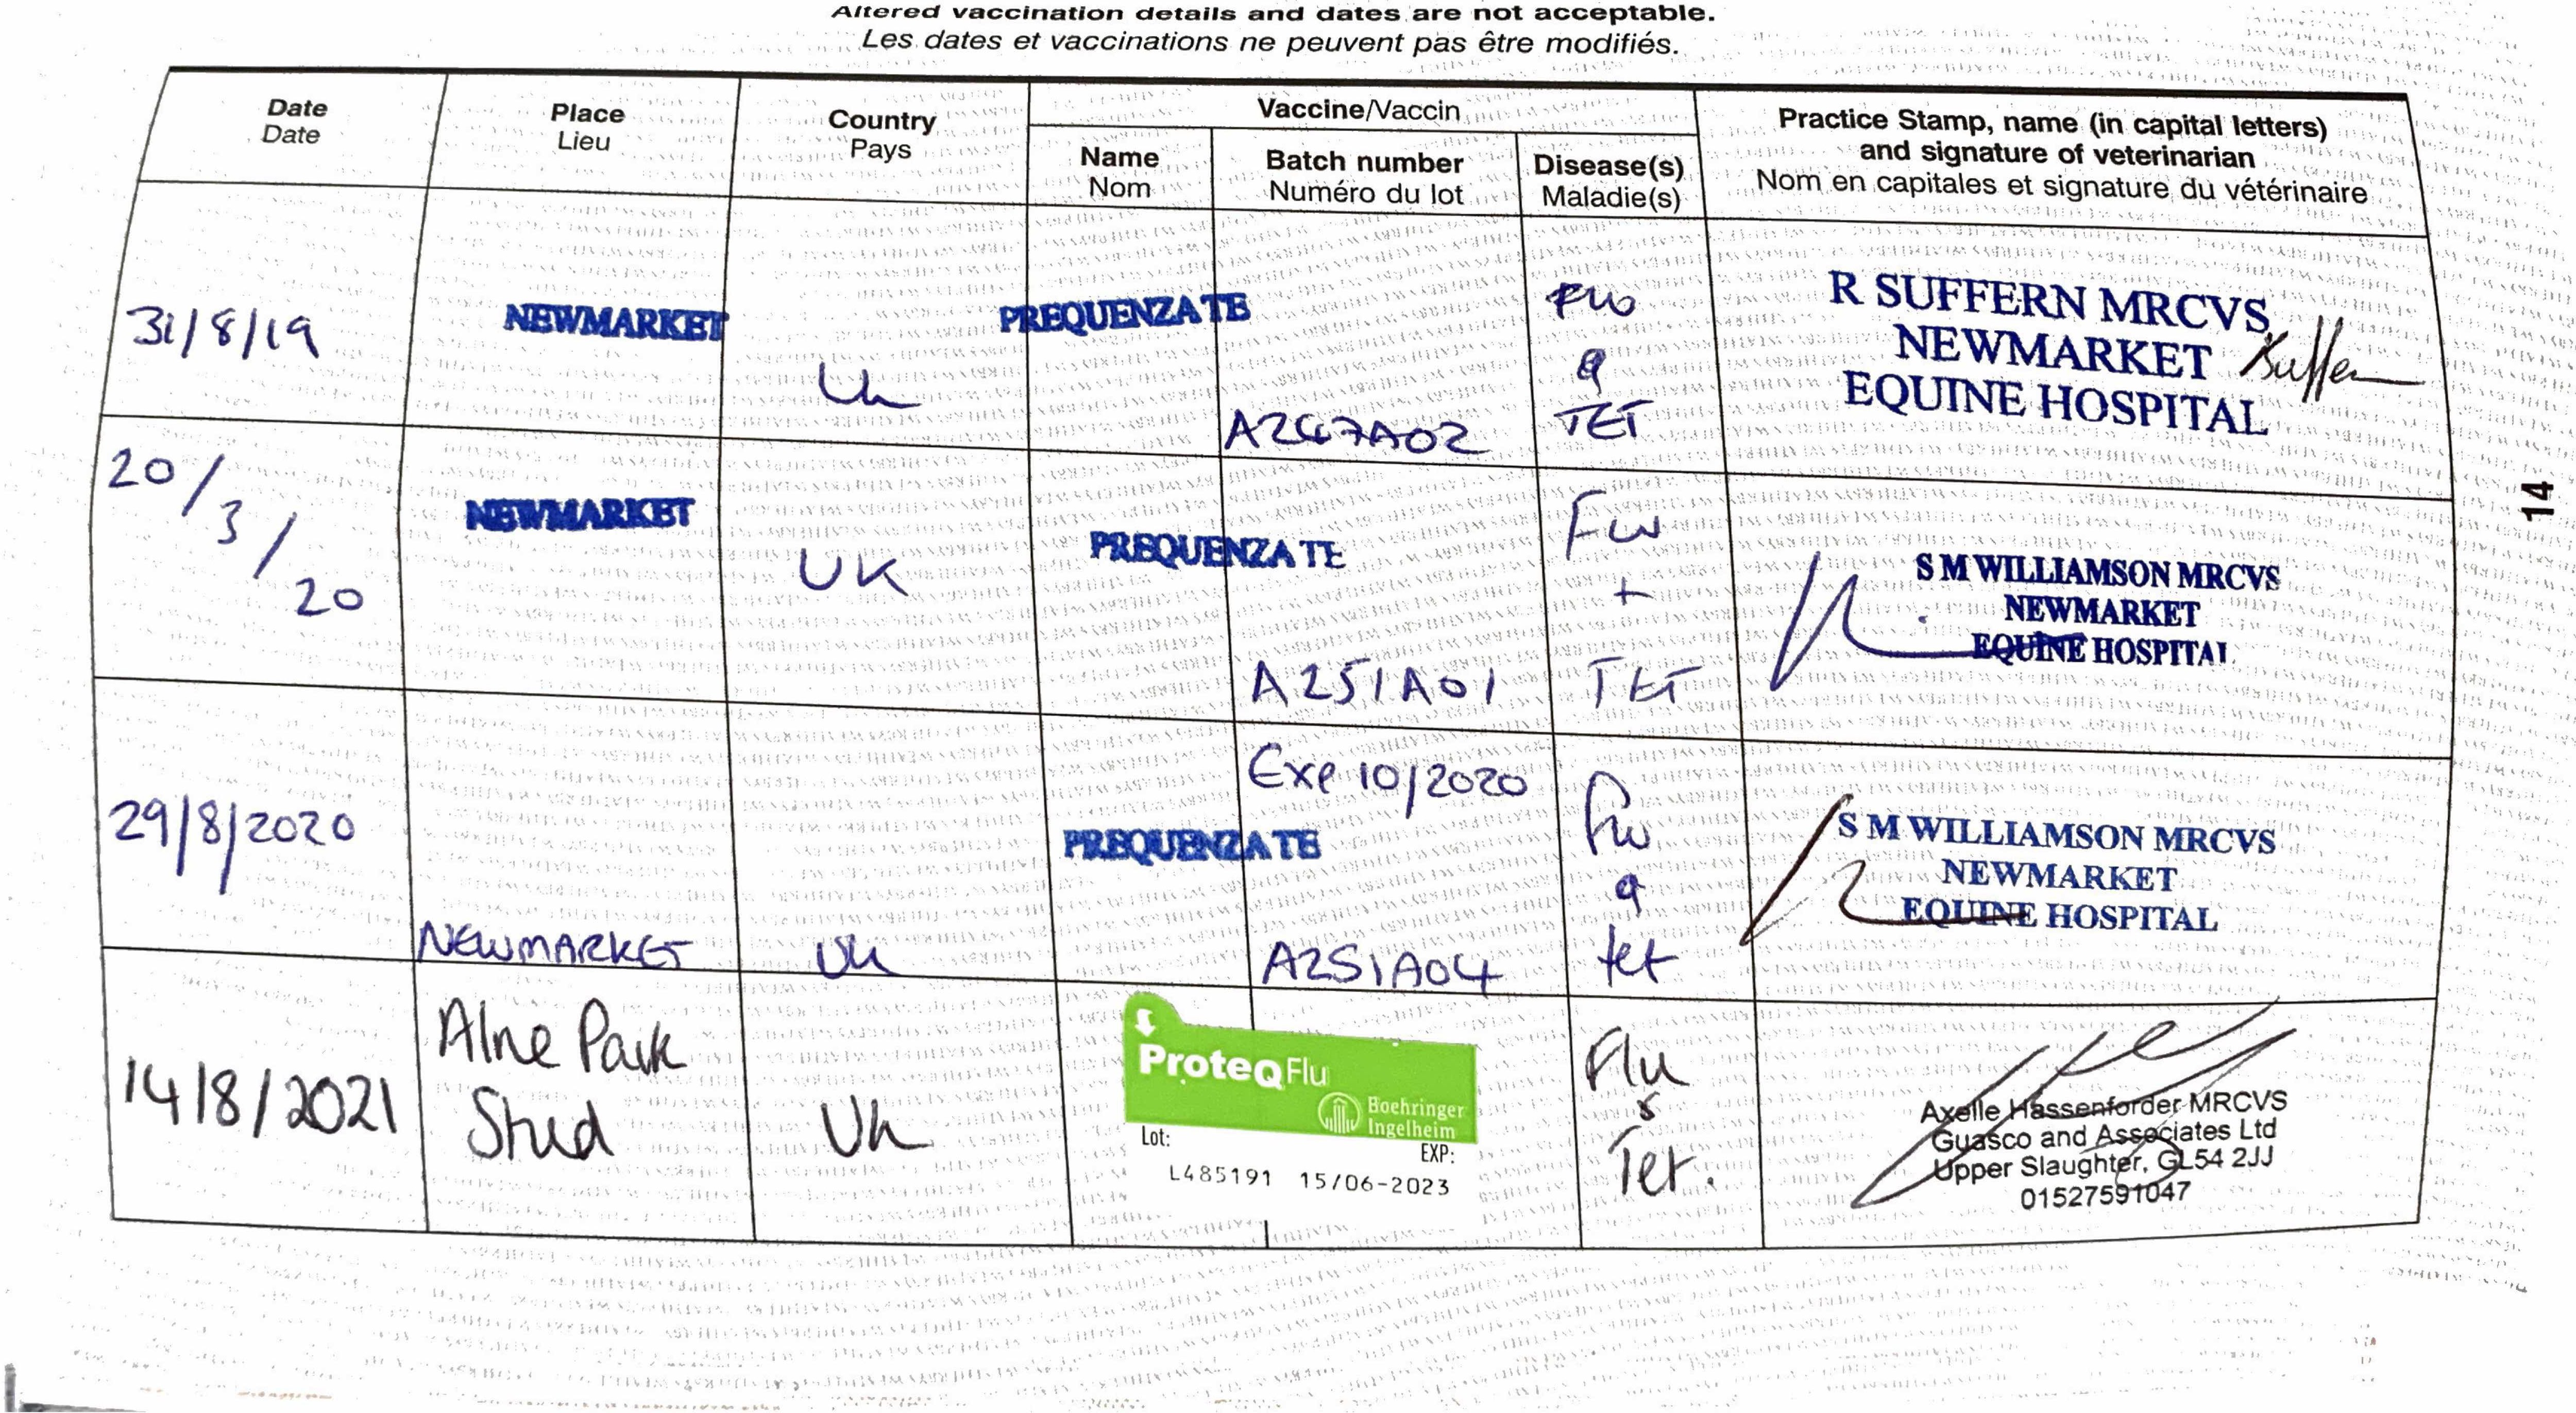 Altered vaccination details and dates are not acceptable.
Les dates et vaccinations ne peuvent pas être modifiés.
Date
Date
Place
Lieu
Country
Pays
Vaccine/Vaccin
Name
Nom
Batch number
Numéro du lot
Disease(s)
Maladie(s)
Practice Stamp, name (in capital letters)
and signature of veterinarian
Nom en capitales et signature du vétérinaire
31/8/19
NEWMARKET
UK
PREQUENZA TE
A247A02
Flu
&
TET
R SUFFERN MRCVS
NEWMARKET
EQUINE HOSPITAL
20/3/20
NEWMARKET
UK
PREQUENZA TE
A251A01
Flu
+
TET
S M WILLIAMSON MRCVS
NEWMARKET
EQUINE HOSPITAL
29/8/2020
NEWMARKET
UK
PREQUENZA TE
Exp 10/2020
A251A04
Flu
&
tet
S M WILLIAMSON MRCVS
NEWMARKET
EQUINE HOSPITAL
14/8/2021
Alne Park
Stud
UK
ProteqFlu
Boehringer
Ingelheim
Lot:
EXP:
L485191 15/06-2023
Flu
&
Tet.
Axelle Hassenforder MRCVS
Guasco and Associates Ltd
Upper Slaughter, GL54 2JJ
01527591047
14